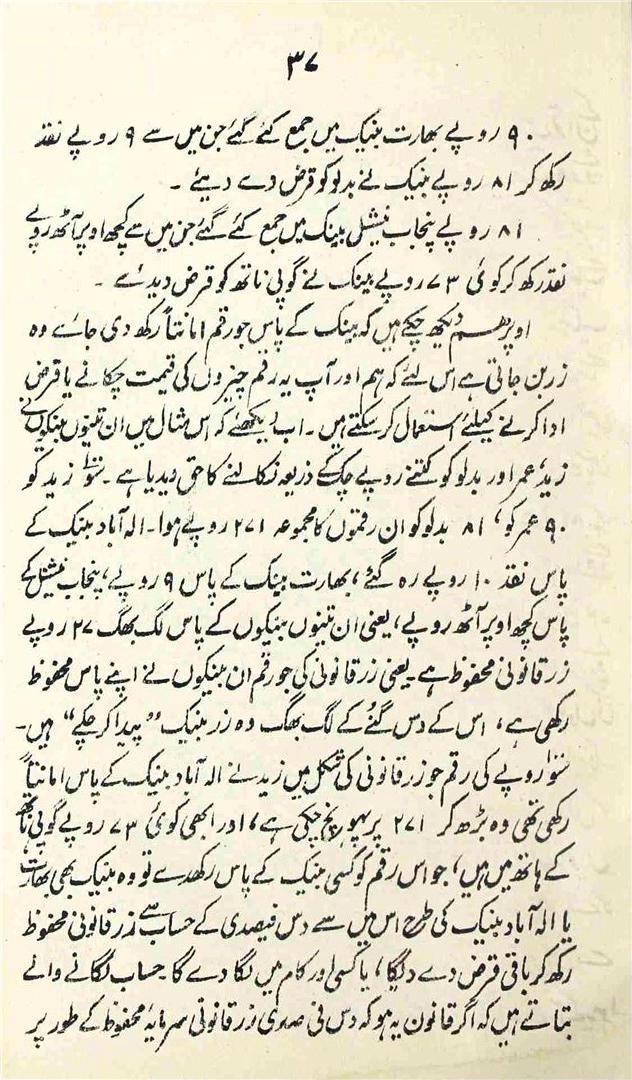 ۳۷
۹۰ روپے بھارت بنیک میں جمع کئے گئے جن میں سے ۹ روپے نقد
رکھ کر ۸۱ روپے بنیک نے بدلو کو قرض دے دیئے ۔
۸۱ روپے پنجاب نیشنل بینک میں جمع کئے گئے جن میں سے کچھ اوپر آٹھ روپے
نقد رکھ کر کوئی ۷۳ روپے بینک نے گوپی ناتھ کو قرض دیدئے ۔
اوپر ہم دیکھ چکے ہیں کہ بینک کے پاس جو رقم امانتاً رکھ دی جائے وہ
زر بن جاتی ہے اس لئے کہ ہم اور آپ یہ رقم چیزوں کی قیمت چکانے یا قرض
ادا کرنے کیلئے استعمال کر سکتے ہیں ۔ اب دیکھئے کہ اس مثال میں ان تینوں بینکوں نے
زید، عمر اور بدلو کو کتنے روپے چک کے ذریعہ نکالنے کا حق دیدیا ہے ۔ سَو زید کو
۹۰ عمر کو، ۸۱ بدلو کو ان رقموں کا مجموعہ ۲۷۱ روپے ہوا۔ الہ آباد بنیک کے
پاس نقد ۱۰ روپے رہ گئے، بھارت بینک کے پاس ۹ روپے، پنجاب نیشنل کے
پاس کچھ اوپر آٹھ روپے، یعنی ان تینوں بنیکوں کے پاس لگ بھگ ۲۷ روپے
زر قانونی محفوظ ہے۔ یعنی زر قانونی کی جو رقم ان بنیکوں نے اپنے پاس محفوظ
رکھی ہے، اس کے دس گنے کے لگ بھگ وہ زر بنیک ”پیدا کر چکے“ ہیں۔
سَو روپے کی رقم جو زر قانونی کی شکل میں زید نے الہ آباد بنیک کے پاس امانتاً
رکھی تھی وہ بڑھ کر ۲۷۱ پر پہونچ چکی ہے، اور ابھی کوئی ۷۳ روپے گوپی ناتھ
کے ہاتھ میں ہیں، جو اس رقم کو کسی بنیک کے پاس رکھدے تو وہ بنیک بھی بھارت
یا الہ آباد بنیک کی طرح اس میں سے دس فیصدی کے حساب سے زر قانونی محفوظ
رکھ کر باقی قرض دے دیگا، یا کسی اور کام میں لگا دے گا۔ حساب لگانے والے
بتاتے ہیں کہ اگر قانون یہ ہو کہ دس فی صدی زر قانونی سرمایۂ محفوظ کے طور پر